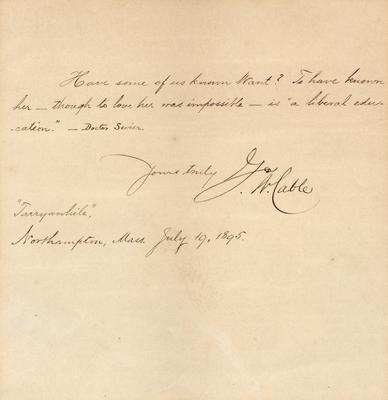 Have some of us known Want? To have known
her — though to love her was impossible — is "a liberal edu-
cation." — Doctor Sevier.
Yours truly
G. W. Cable
"Tarryawhile",
Northampton, Mass. July 19, 1895.